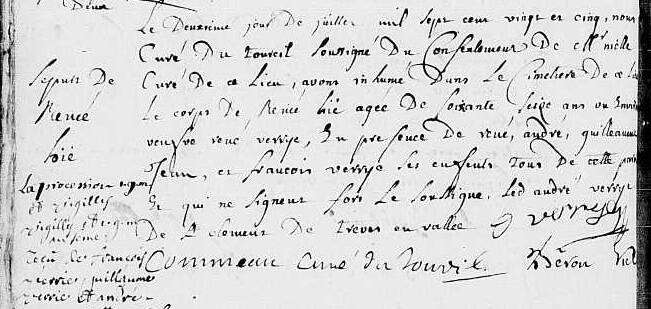 Deux
Le Deuxieme jour De juillet mil sept cent vingt et cinq, nous
Curé Du toureil soussigné Du Consentement De Mr
Curé De ce Lieu, avons inhumé Dans Le Cimetiere De ce Lieu
Le corps De Renée hié agée De soixante seise ans ou Envir
veufve rené verrye, En presence De rené, andré, guilleaume
Jean, et francois verrye ses enfents tous De cette par
se qui ne signent fors Le soussigné, Led andré verrye
De St clement De treves en vallée verrye
Commeau curé du Toureil
sepult De
Renée
hié
La procession
et vigilles
vigilles et
Reçu de francois
verrie guillaume
verrie et andre